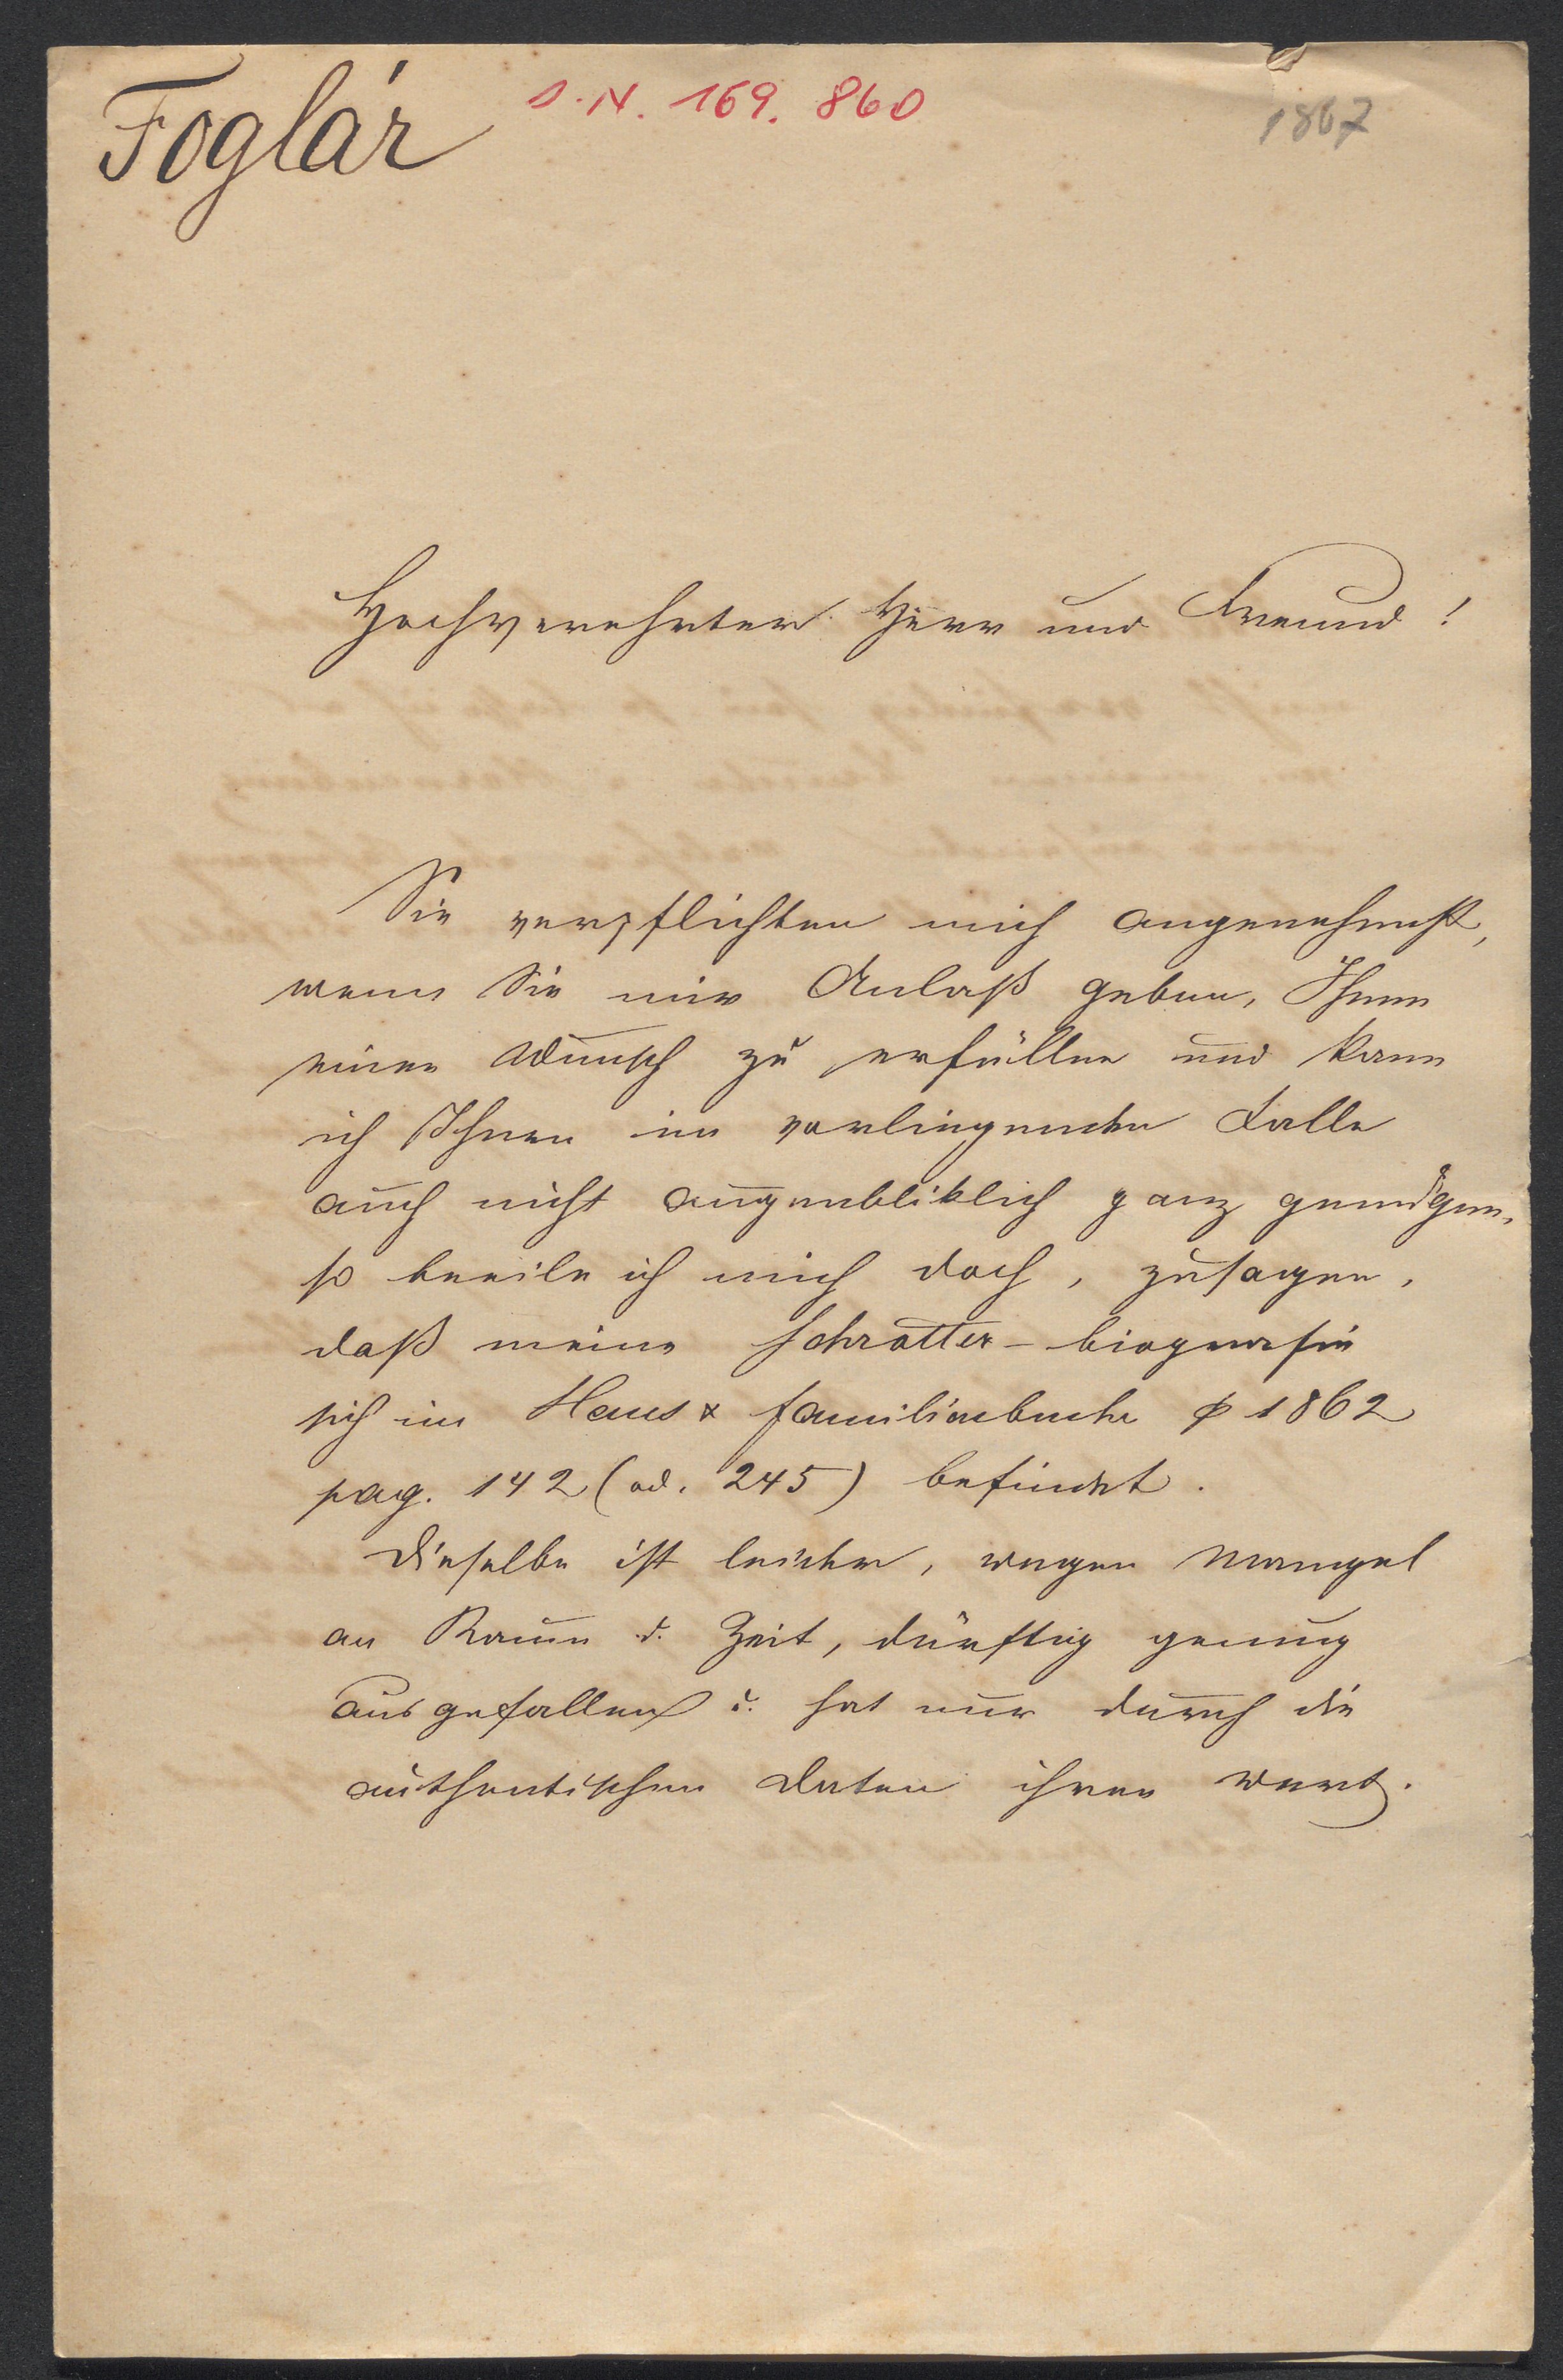 Foglár
I. N. 169. 860
1867
Hochverehrter Herr und Freund!
Sie verpflichten mich angenehmst,
wenn Sie mir Anlaß geben, Ihnen
einen Wunsch zu erfüllen und kann
ich Ihnen im vorliegenden Falle
auch nicht augenbliklich ganz genügen,
so beeile ich mich doch, zu sagen,
daß meine Schrötter-biografie
sich im Haus & familienbuche 1862
pag. 142 (od. 245) befindet.
Dieselbe ist leider, wegen Mangel
an Raum u. Zeit, dürftig genug
ausgefallen u. hat nur durch die
authentischen Daten ihren Wert.